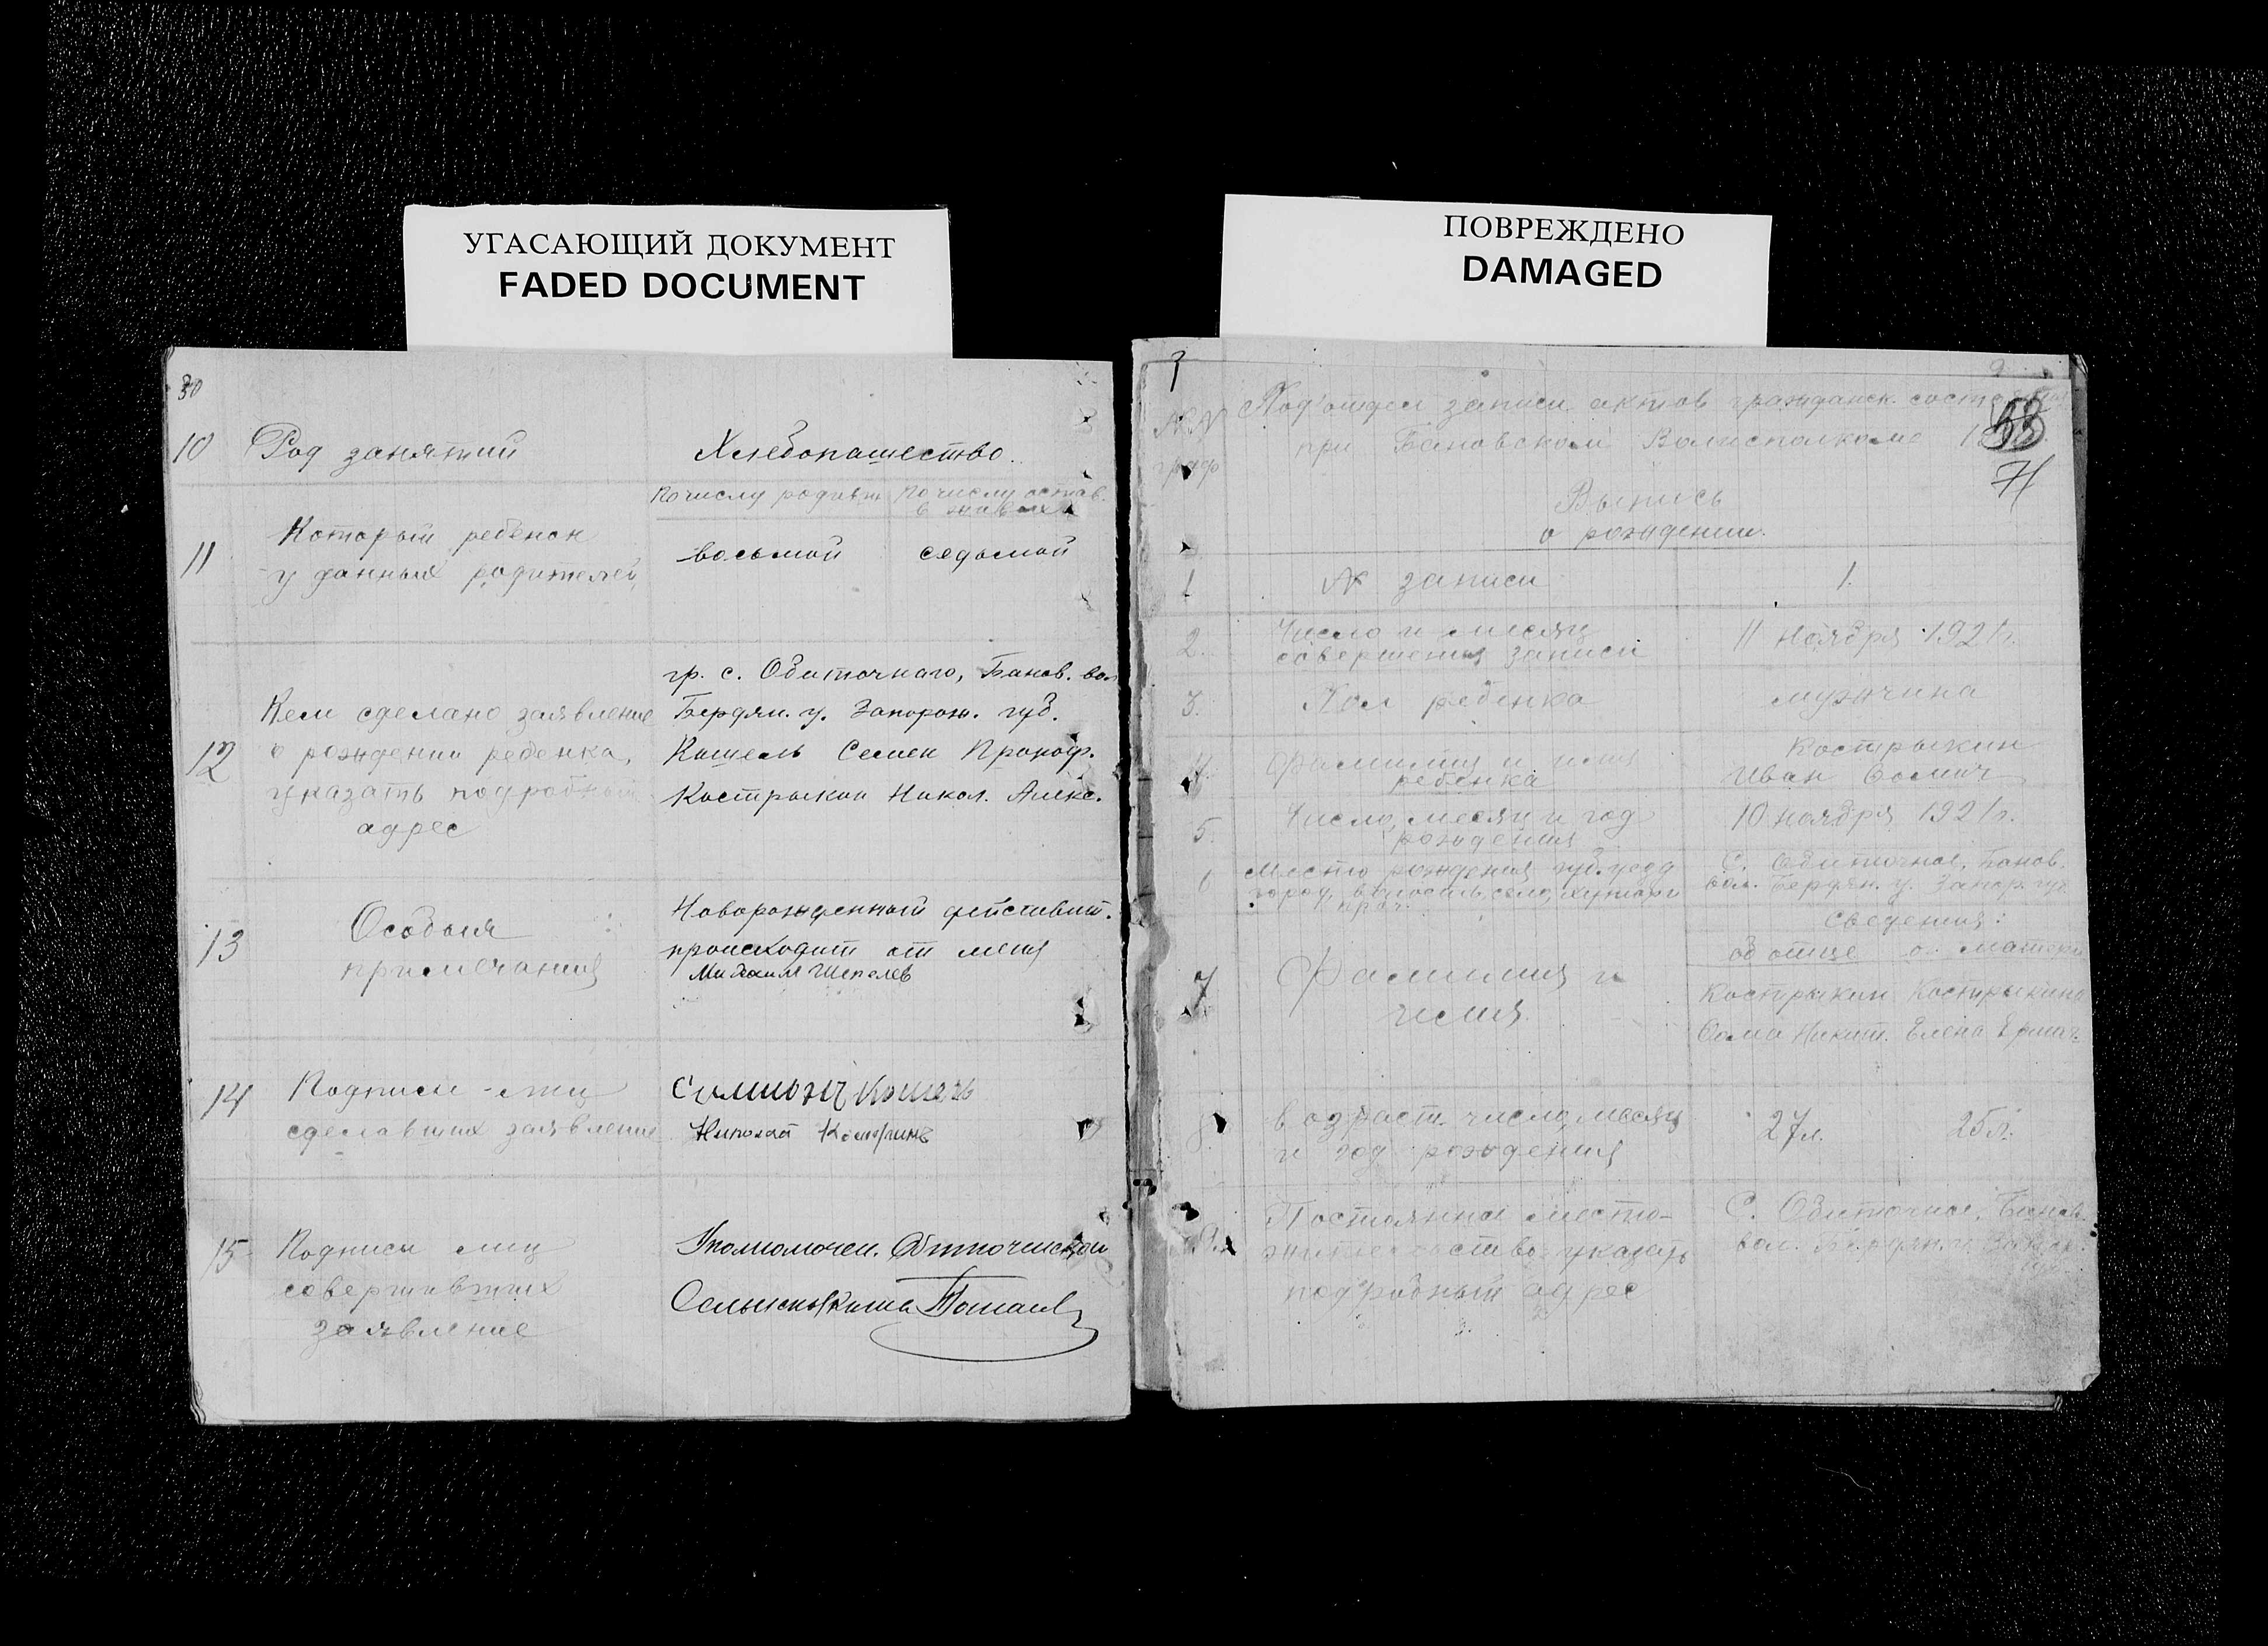 УГАСАЮЩИЙ ДОКУМЕНТ
FADED DOCUMENT
30
10 Род занятий Хлебопашество.
по числу родивш по числу остав.
в живых
11 Который ребенок
у данных родителей восьмой седьмой
гр. с. Обиточнаго, Банов. вол
Кем сделано заявление Бердян. у. Запорож. губ.
12 о рождении ребенка, Кошель Семен Прокоф.
указать подробный Кострыкин Никол. Алекс.
адрес
13 Особыя Новорожденный действит.
примечания происходит от меня
Михаил Шепелев
14 Подписи лиц
сделавших заявление Николай
15 Подписи лиц Уполномочен.
совершивших
заявление
ПОВРЕЖДЕНО
DAMAGED
№№
граф
Под'отдел записи актов гражданск. состояния
при Бановском Волисполкоме
58
71
Выпись
о рождении.
1 № записи 1.
2. Число и месяц
совершения записи 11 ноября 1921г.
3. Пол ребенка мужчина
4. Фамилия и имя Кострыкин
ребенка Иван Фомич
5. Число, месяц и год 10 ноября 1921г.
рождения
6 Место рождения губ. уезд С. Обиточное, Банов.
город, волость, село, хутор и вол. Бердян. у. Запор. губ.
проч.
Сведения:
об отце о матери
7 Фамилия и Кострыкин Кострыкина
имя. Фома Никит. Елена
8 возраст. число, месяц 27л. 25л.
и год рождения
9. Постоянное место- С. Обиточное, Банов.
жительство указать вол. Бердян. у. Запор.
подробный адрес губ.